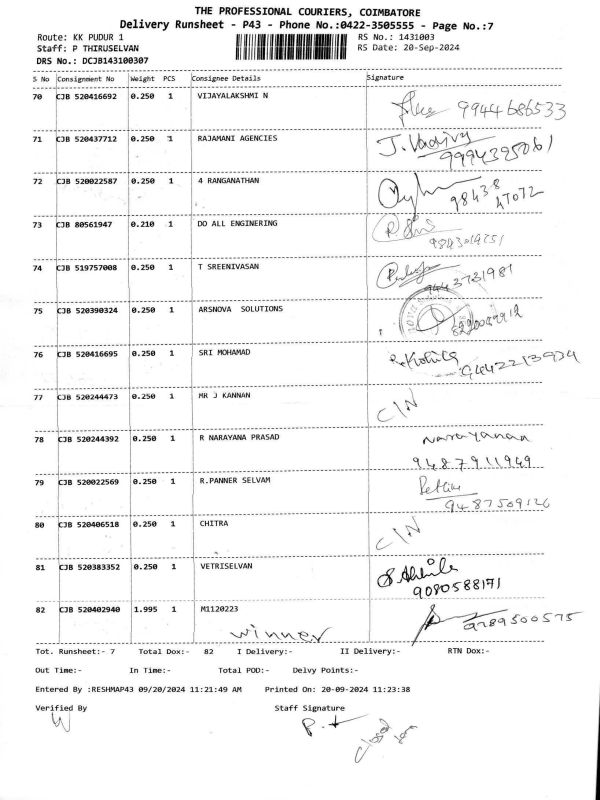 THE PROFESSIONAL COURIERS, COIMBATORE
Delivery Runsheet - P43 - Phone No.:0422-3505555 - Page No.:7
Route: KK PUDUR 1 RS No.: 1431003
Staff: P THIRUSELVAN RS Date: 20-Sep-2024
DRS No.: DCJB143100307
S No Consignment No Weight PCS Consignee Details Signature
70 CJB 520416692 0.250 1 VIJAYALAKSHMI N 9944686533
71 CJB 520437712 0.250 1 RAJAMANI AGENCIES J. Vadivu
9994395061
72 CJB 520022587 0.250 1 4 RANGANATHAN 98438
47072
73 CJB 80561947 0.210 1 DO ALL ENGINERING
74 CJB 519757008 0.250 1 T SREENIVASAN
9443731981
75 CJB 520390324 0.250 1 ARSNOVA SOLUTIONS
76 CJB 520416695 0.250 1 SRI MOHAMAD
77 CJB 520244473 0.250 1 MR J KANNAN C/N
78 CJB 520244392 0.250 1 R NARAYANA PRASAD Narayanan
9487911949
79 CJB 520022569 0.250 1 R.PANNER SELVAM
9487509126
80 CJB 520406518 0.250 1 CHITRA C/N
81 CJB 520383352 0.250 1 VETRISELVAN
9080588171
82 CJB 520402940 1.995 1 M1120223 9789500575
winner
Tot. Runsheet:- 7 Total Dox:- 82 I Delivery:- II Delivery:- RTN Dox:-
Out Time:- In Time:- Total POD:- Delvy Points:-
Entered By :RESHMAP43 09/20/2024 11:21:49 AM Printed On: 20-09-2024 11:23:38
Verified By Staff Signature